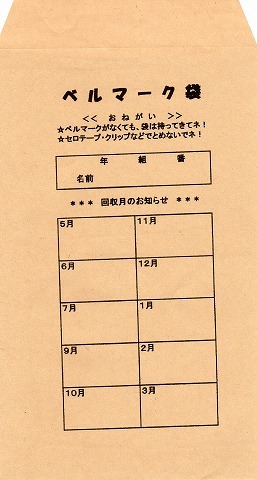 ベルマーク袋
<< おねがい >>
★ベルマークがなくても、袋は持ってきてネ!
★セロテープ・クリップなどでとめないでネ!
年 組 番
名前
*** 回収月のお知らせ ***
5月 11月
6月 12月
7月 1月
9月 2月
10月 3月